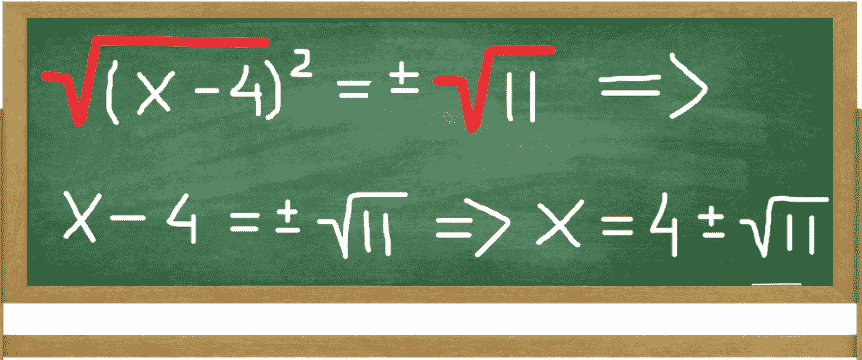 √(x-4)² = ± √11 =>
x-4 = ± √11 => x = 4 ± √11